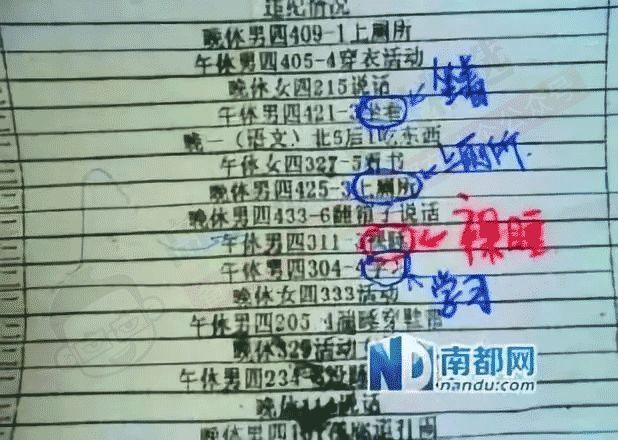 违纪情况
晚休男四409-1上厕所
午休男四405-4穿衣活动
晚休女四215说话
午休男四421-3坐着 坐着
晚一(语文)北5后1吃东西
午休女四327-5看书
晚休男四425-3上厕所 上厕所
晚休男四433-6翻箱子说话
午休男四311- 裸睡 裸睡
午休男四304-4学习 学习
晚休女四333活动
午休男四205-4 睡穿鞋
晚休329活动
午休男四234
晚休 说话
晚休男四
南都网
nandu.com